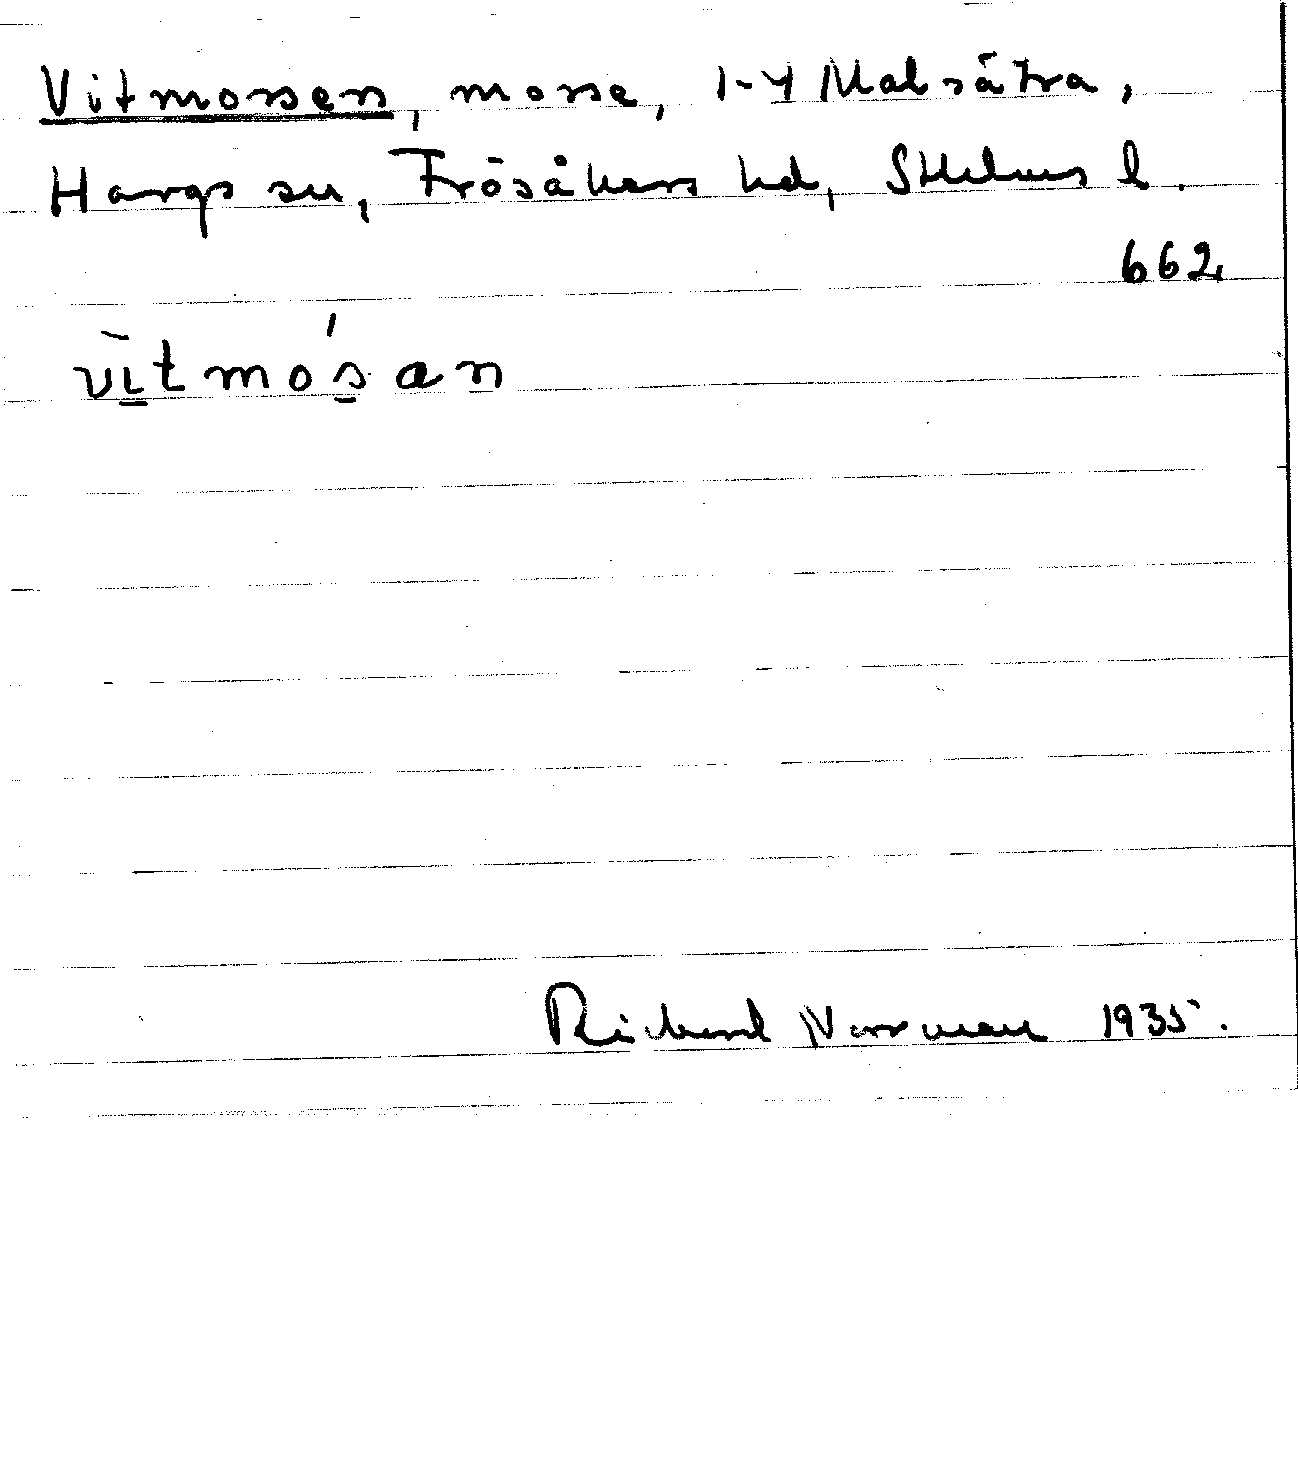 Vitmossen, mosse, 1-4 Malsätra,
Hargs sn, Frösåkers hd, Sthlms l.
662
vı̄tmósan
Richard Norrman 1935.